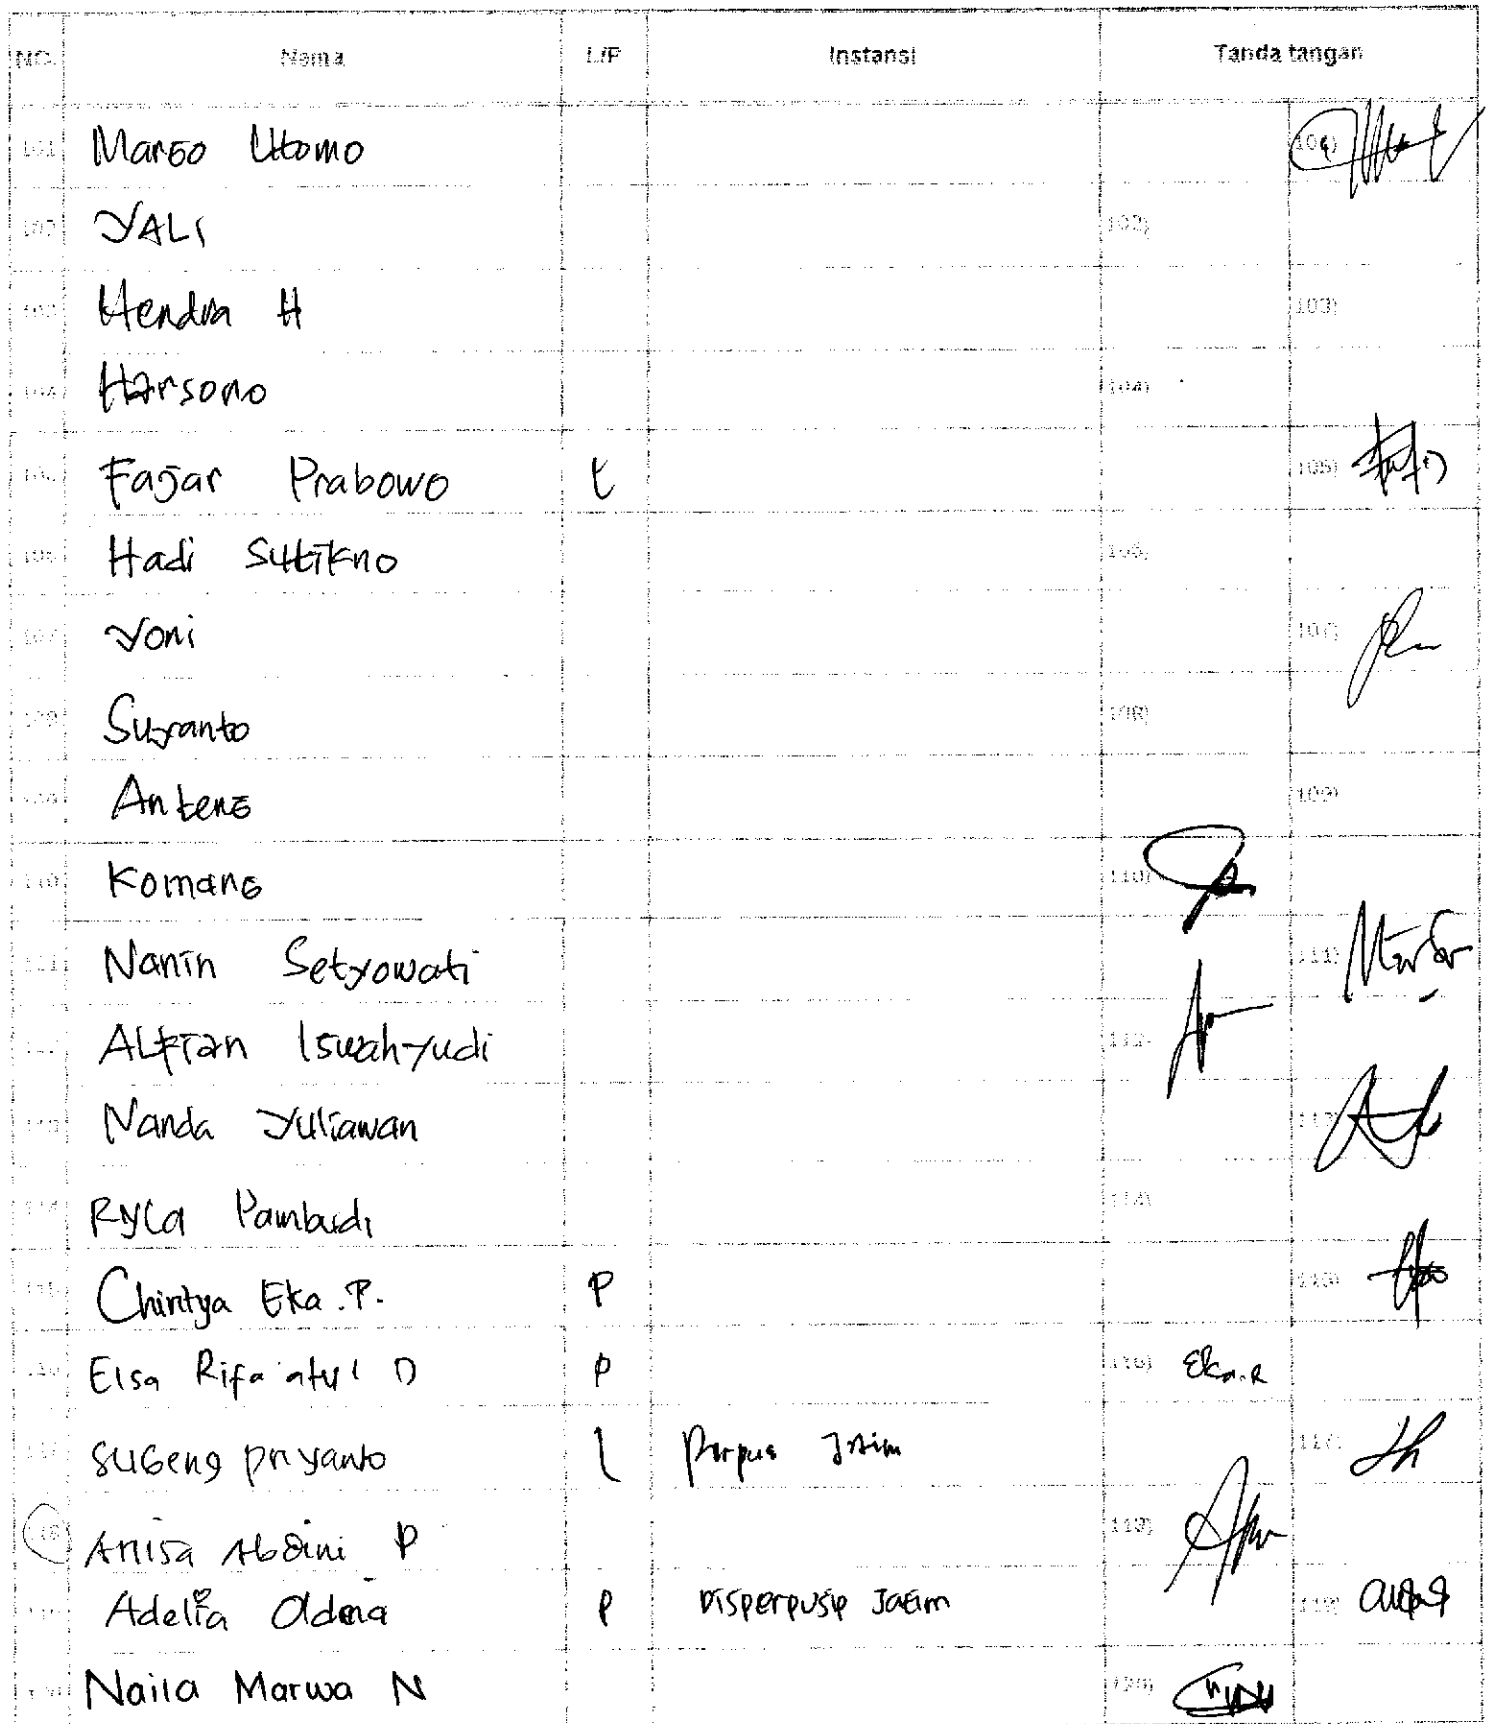 NO. Nama L/P Instansi Tanda tangan
101 Margo Utomo 101)
102 YALI 102)
103 Hendra H 103)
104 Harsono 104)
105 Fajar Prabowo L 105)
106 Hadi Sutikno 106)
107 Yoni 107)
108 Suyranto 108)
109 Anteng 109)
110 Komang 110)
111 Nanin Setyowati 111)
112 ALFian Iswahyudi 112)
113 Nanda Yuliawan 113)
114 Ryca Pambudi 114)
115 Chintya Eka .P. P 115)
116 Elsa Rifa'atul D P 116) Eka.R
117 Sugeng priyanto L Perpus Jatim 117)
118 Anisa Abdini P 118)
119 Adelia Oldena P Disperpusip Jatim 119)
120 Naila Marwa N 120)